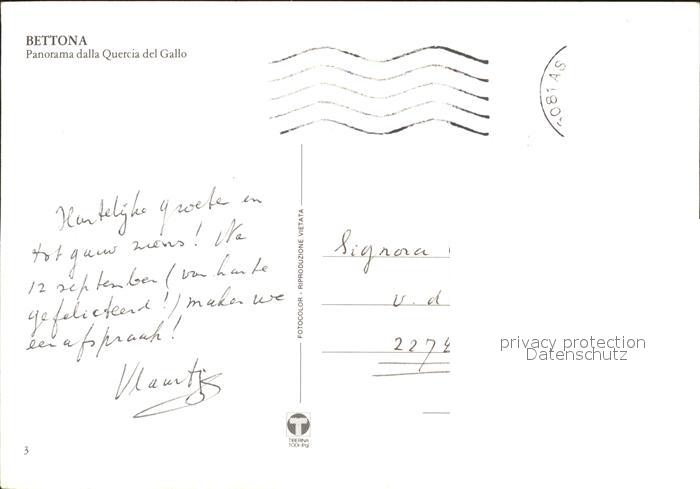 BETTONA
Panorama dalla Quercia del Gallo
Hartelijke groeten en
tot gauw ziens! Na
12 september (van harte
gefeliciteerd!) maken we
een afspraak!
FOTOCOLOR - RIPRODUZIONE VIETATA
Signora
v. d
227
privacy protection
Datenschutz
T
TIBERINA
TODI (Pg)
3